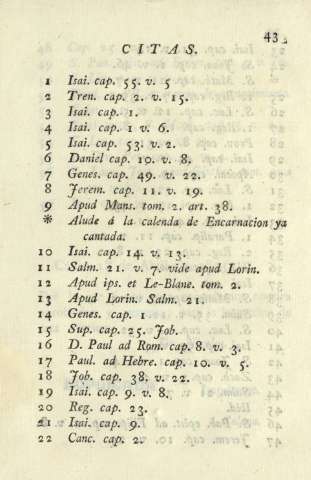 43
CITAS.
1 Isai. cap. 55. v. 5
2 Tren. cap. 2. v. 15.
3 Isai. cap. 1.
4 Isai. cap. 1 v. 6.
5 Isai. cap. 53. v. 2.
6 Daniel cap. 10. v. 8.
7 Genes. cap. 49. v. 22.
8 Jerem. cap. 11. v. 19.
9 Apud Mans. tom. 2. art. 38.
* Alude á la calenda de Encarnacion ya
cantada.
10 Isai. cap. 14. v. 13.
11 Salm. 21. v. 7. vide apud Lorin.
12 Apud ips. et Le-Blane. tom. 2.
13 Apud Lorin. Salm. 21.
14 Genes. cap. 1
15 Sup. cap. 25. Job.
16 D. Paul ad Rom. cap. 8. v. 3.
17 Paul. ad Hebre. cap. 10. v. 5.
18 Job. cap. 38. v. 22.
19 Isai. cap. 9. v. 8.
20 Reg. cap. 23.
21 Isai. cap. 9.
22 Canc. cap. 2.